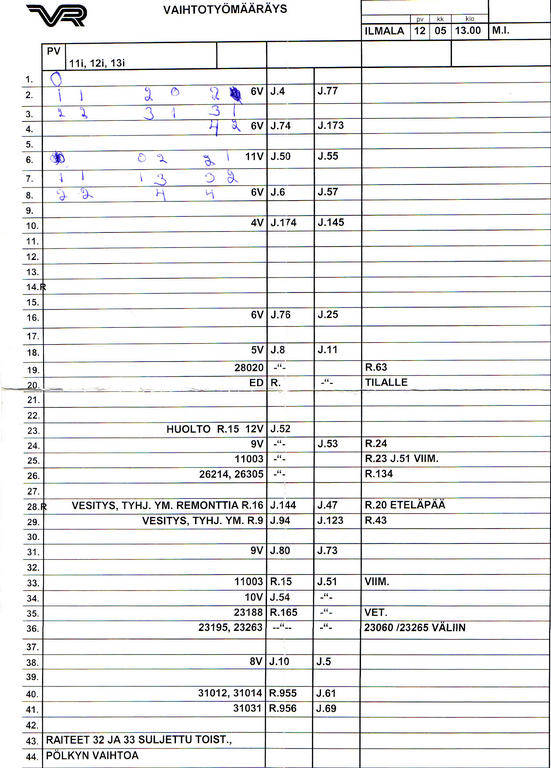 VR VAIHTOTYÖMÄÄRÄYS
pv kk klo
ILMALA 12 05 13.00 M.I.
PV
11i, 12i, 13i
1. 0
2. 11 20 2 6V J.4 J.77
3. 22 31 31
4. 42 6V J.74 J.173
5.
6. 02 21 11V J.50 J.55
7. 11 13 32
8. 22 4 4 6V J.6 J.57
9.
10. 4V J.174 J.145
11.
12.
13.
14.R
15.
16. 6V J.76 J.25
17.
18. 5V J.8 J.11
19. 28020 -"- R.63
20. ED R. -"- TILALLE
21.
22.
23. HUOLTO R.15 12V J.52
24. 9V -"- J.53 R.24
25. 11003 -"- R.23 J.51 VIIM.
26. 26214, 26305 -"- R.134
27.
28.R VESITYS, TYHJ. YM. REMONTTIA R.16 J.144 J.47 R.20 ETELÄPÄÄ
29. VESITYS, TYHJ. YM. R.9 J.94 J.123 R.43
30.
31. 9V J.80 J.73
32.
33. 11003 R.15 J.51 VIIM.
34. 10V J.54 -"-
35. 23188 R.165 -"- VET.
36. 23195, 23263 --"-- -"- 23060 /23265 VÄLIIN
37.
38. 8V J.10 J.5
39.
40. 31012, 31014 R.955 J.61
41. 31031 R.956 J.69
42.
43. RAITEET 32 JA 33 SULJETTU TOIST.,
44. PÖLKYN VAIHTOA